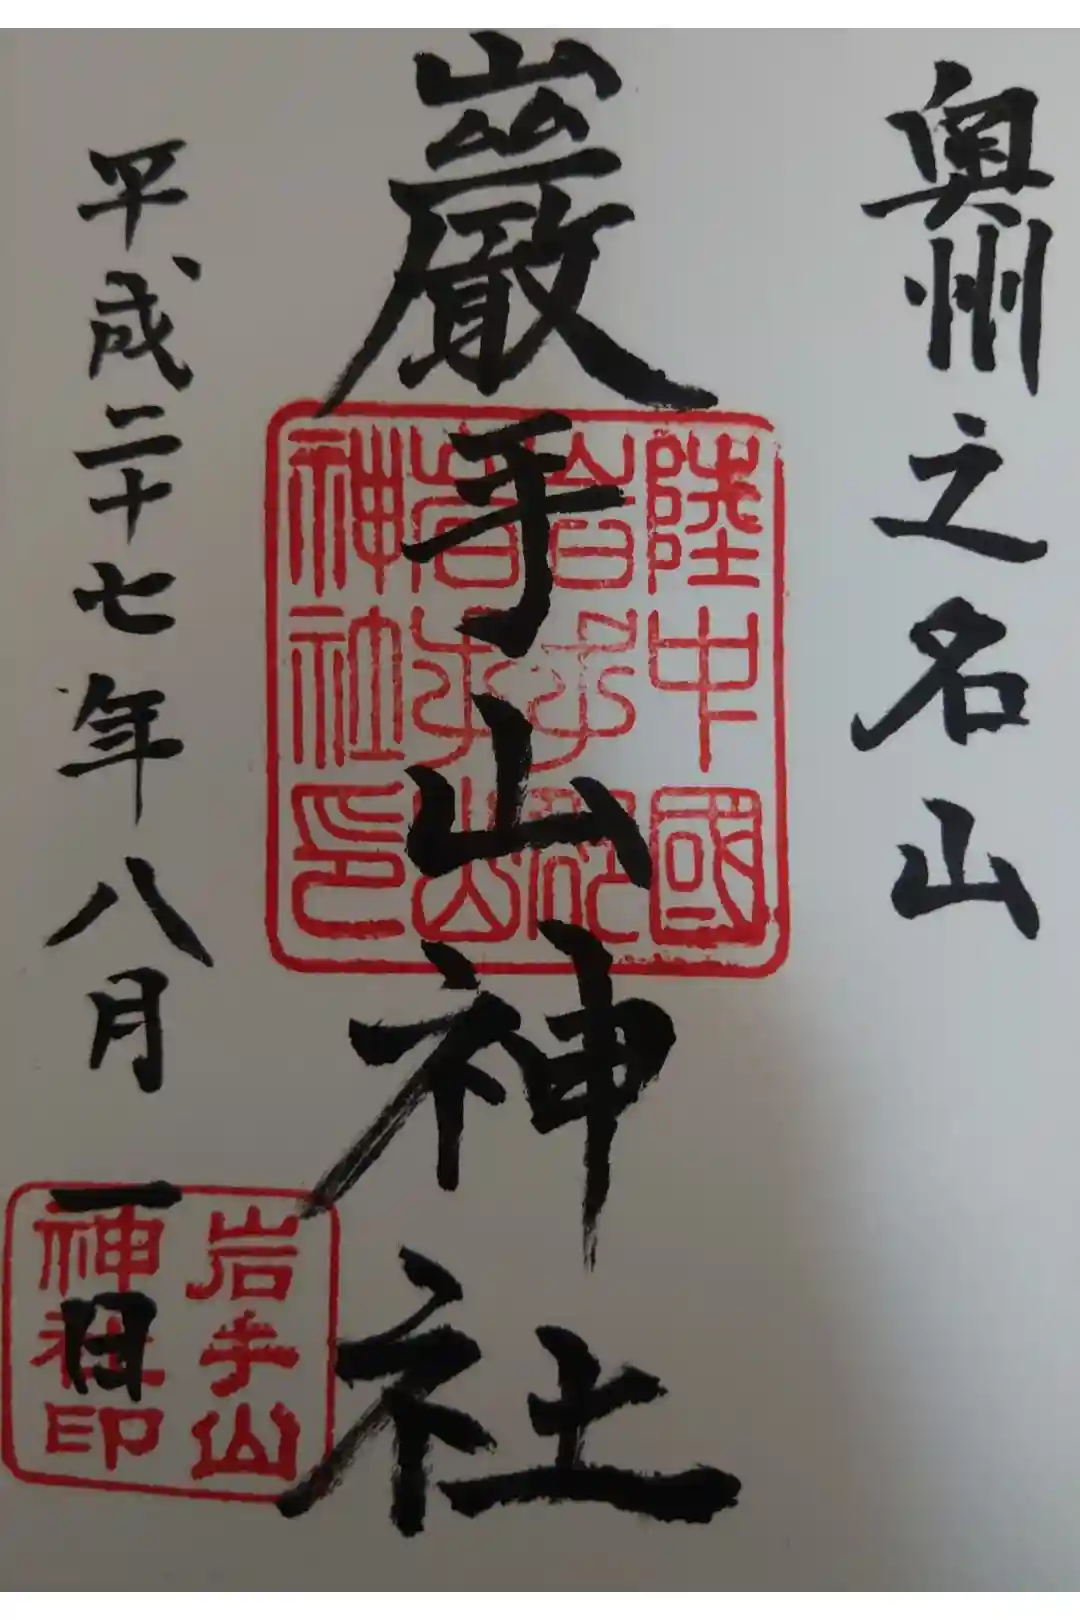 奥州之名山
巌手山神社
平成二十七年八月一日
陸中國
岩手郡
岩手山
神社印
岩手山
神社印